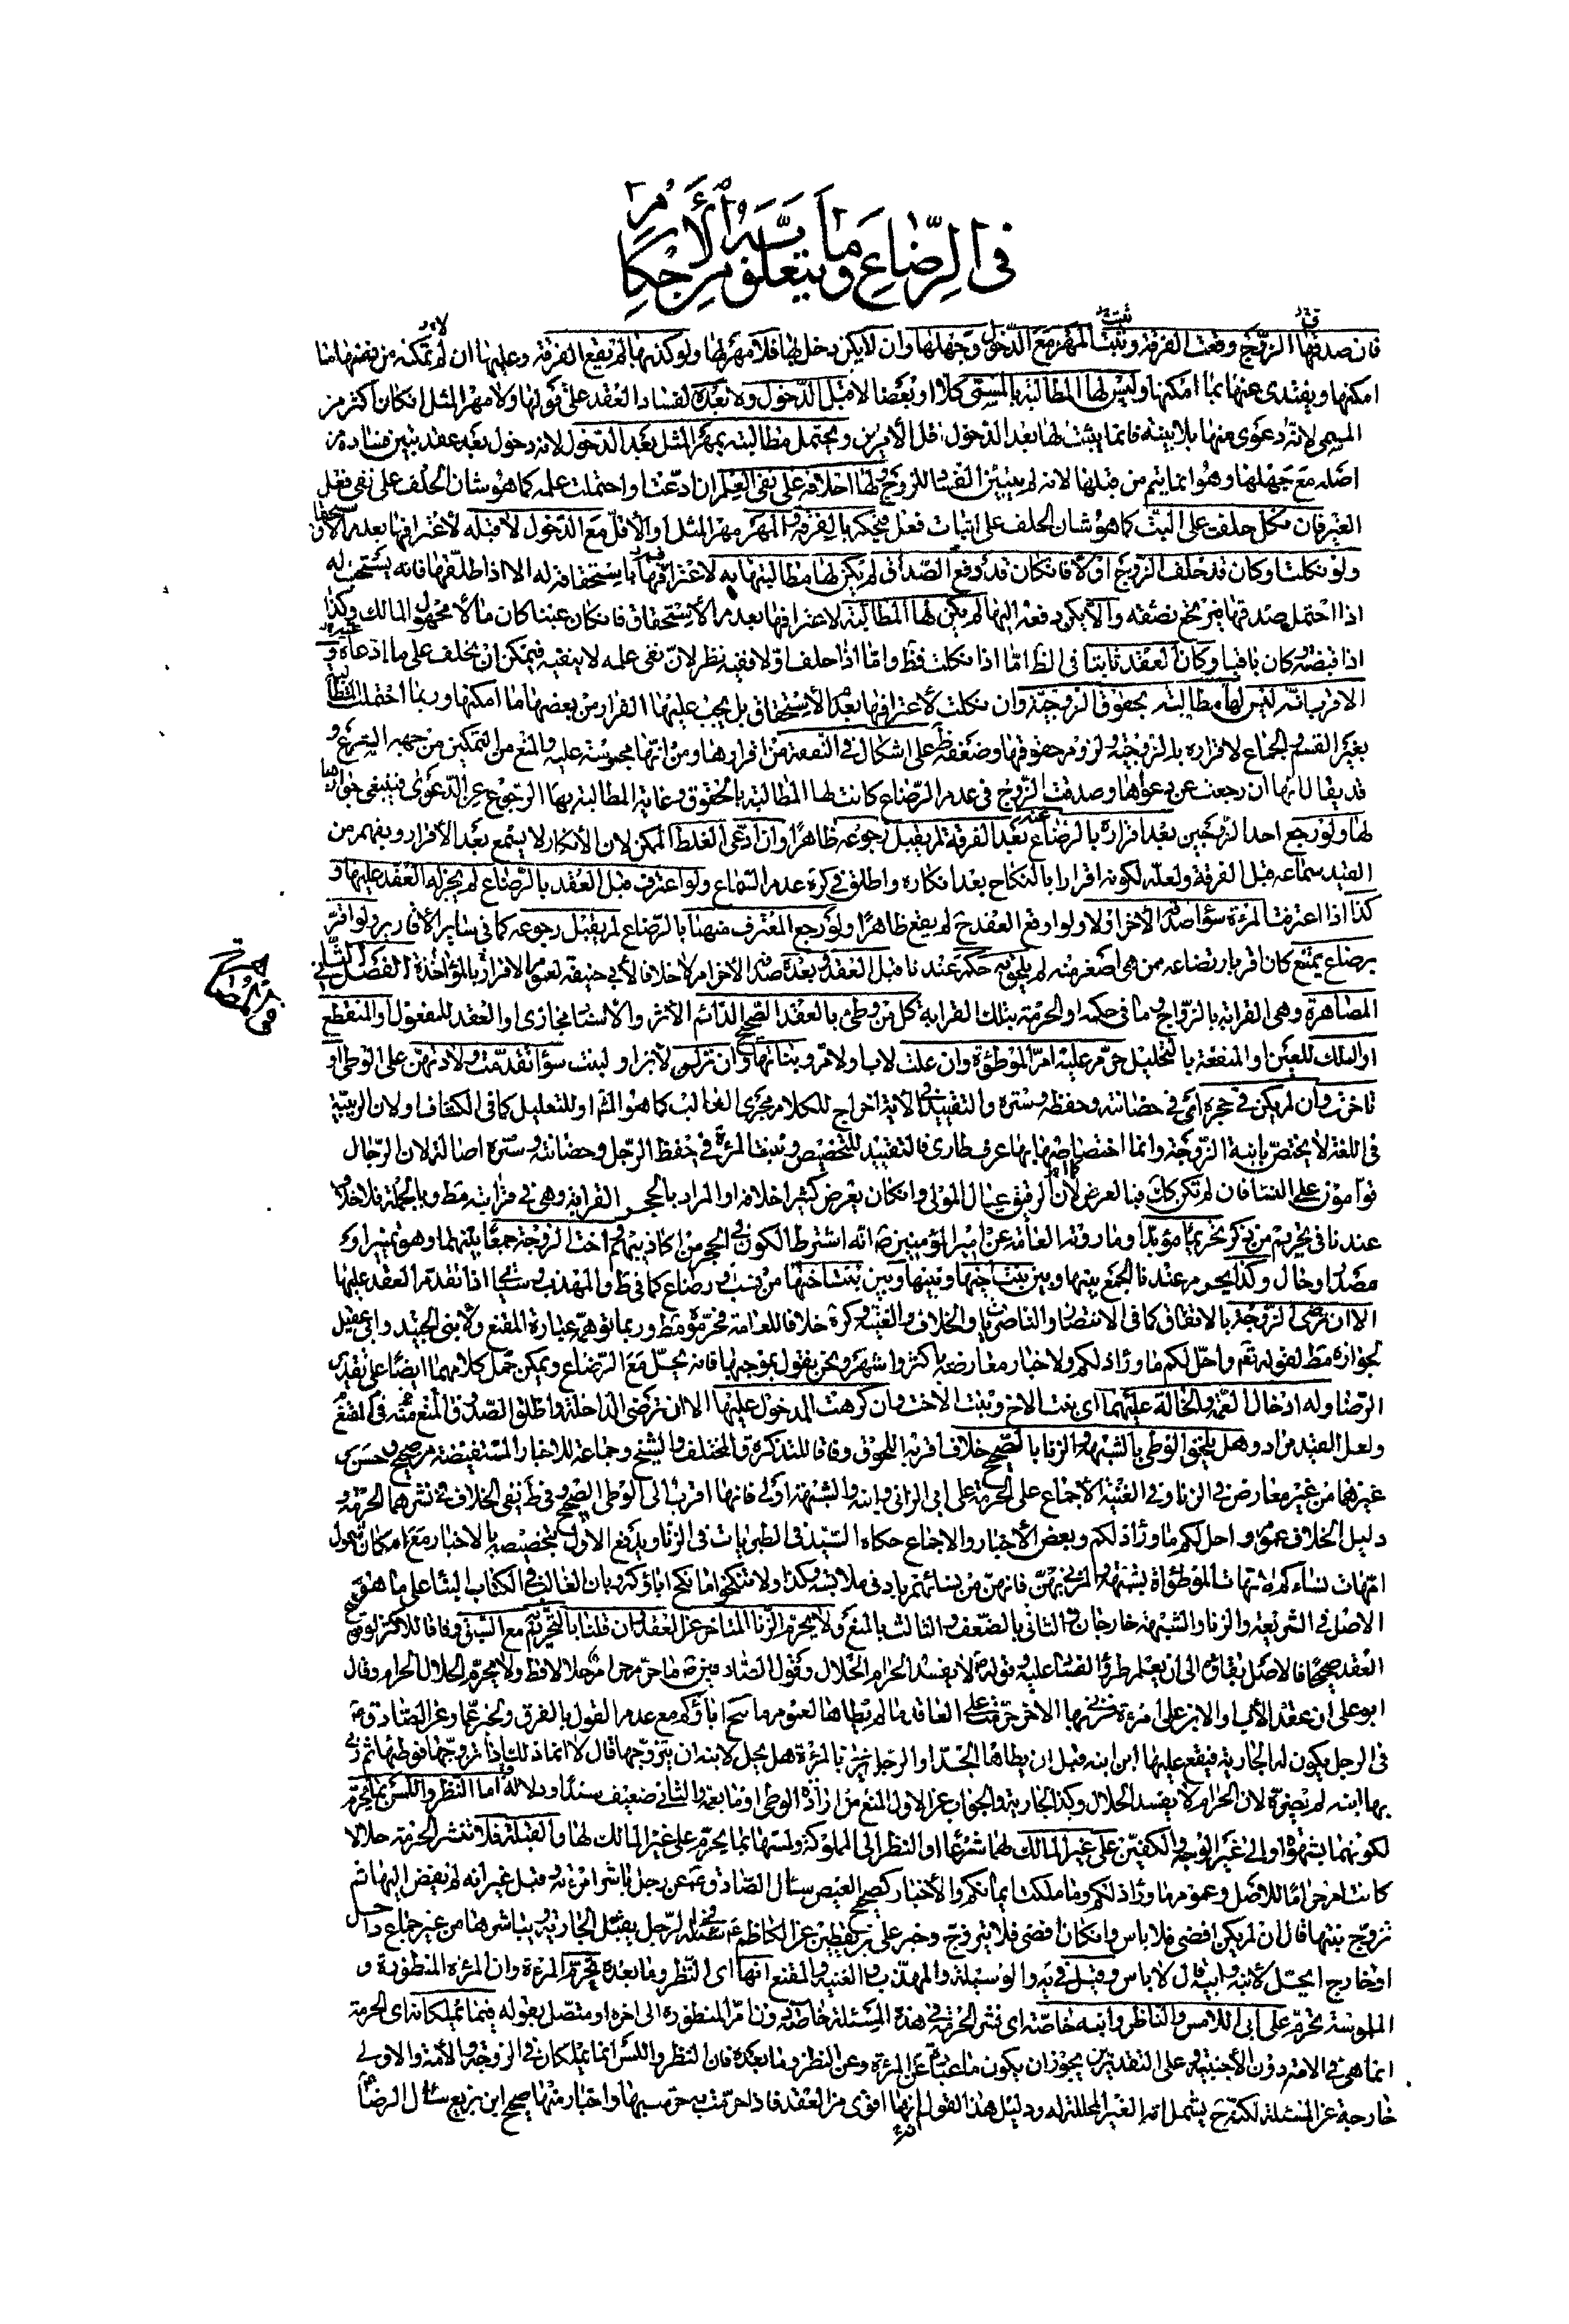 في الرضاع وما يتعلق به من الأحكام
فان صدقها الزوج وقعت الفرقة ويثبت المهر مع الدخول وجهلها وان لا يكن دخل بها فلا مهر لها ولو كذبها لم يقع الفرقة وعليها ان لا تمكنه من نفسها ما
امكنها ويفتدى عنها بما امكنها وليس لها المطالبة بالمسمى كلا او بعضا لا قبل الدخول ولا بعده لفساد العقد على قولها ولا مهر المثل ان كان اكثر من
المسمى لانه دعوى منها بلا بينة فانما يثبت لها بعد الدخول اقل الامرين ويحتمل مطالبته بمهر المثل بعد الدخول لانه دخول بعد عقد تبين فساده من
اصله مع جهلها وهو انما يتم من قبلها لانه لم يتبين الفساد للزوج ولها احلافه على نفى العلم ان ادعت واحتملت علمه كما هو شان الحلف على نفى فعل
الغير فان نكل حلفت على البت كما هو شان الحلف على اثبات فعل فيحكم بالفرقة والمهر مهر المثل او الاقل مع الدخول لا قبله لاعترافها بعدم الاستحقاق
ولو نكلت او كان قد حلف الزوج اولا فان كان قد دفع الصداق لم يكن لها مطالبتها به لاعترافها بما يستحقا قبله الا اذا طلقها فانه يستحق له
اذا احتمل صدقها فيرتجع نصفه والا يكن دفعه اليها لم يكن لها المطالبة لاعترافها بعدم الاستحقاق فان كان عينا كان مالا مجهول المالك وكذا
اذا قبضته كان باقيا وكان العقد ثابتا في الظ اما اذا نكلت فظ واما اذا حلف اولا ففيه نظر لان نفى علمه لا ينفيه فيمكن ان يحلف على ما ادعاه و
الاقرب انه ليس لها مطالبته بحقوق الزوجية وان نكلت لاعترافها بعدم الاستحقاق بل يجب عليها الفرار من بعضها ما امكنها وربما احتملت المطالبة
بغير القسم والجماع لاقراره بالزوجية ولزوم حقوقها وضعفه ظ على اشكال في النفقة من اقرارها ومن انها محبوسة عليه والمنع من التمكين من جهة الشرع و
قد يقال انها ان رجعت عن دعواها وصدقت الزوج في عدم الرضاع كانت لها المطالبة بالحقوق وغاية المطالبة بها الرجوع عن الدعوى فينبغي جوازها
لها ولو رجع احد الزوجين بعد اقراره بالرضاع بعد الفرقة لم يقبل رجوعه ظاهرا وان ادعى الغلط الممكن لان الانكار لا يسمع بعد الاقرار ويفهم من
القيد سماعه قبل الفرقة ولعله لكونه اقرارا بالنكاح بعد انكاره واطلق في كرة عدم السماع ولو اعترف قبل العقد بالرضاع لم يجز له العقد عليها و
كذا اذا اعترفت المرءة سواء صدقه الاخر او لا ولو اوقع العقد ح لم يقع ظاهرا ولو رجع المعترف منهما بالرضاع لم يقبل رجوعه كما في ساير الاقارير ولو اقر
برضاع يمتنع كان اقر بارتضاعه من هى اصغر منه لم يلحق به حكمه عندنا قبل العقد وبعده صدقه الاخر ام لا خلافا لأبي حنيفة لعموم الاقرار بالمؤاخذة الفصل الثاني في
المصاهرة وهى القرابة بالزواج وما في حكمه او الحرمة بتلك القرابة كل من وطئ بالعقد الصحيح الدائم الاثر والاسناد مجازى او العقد للمفعول او المنقطع
او الملك للعين او المنفعة بالتحليل حرم عليه ام الموطوئة وان علت لاب ولام وبناتها وان نزلن لابن او لبنت سواء تقدمت ولادتهن على الوطى او
تاخرت وان لم يكن في حجره اى في حضانته وحفظه وستره والتقييد في الاية اخراج للكلام مجرى الغالب كما هو الش او للتعليل كما في الكشاف او لان الربيبة
في اللغة لا يختص بابنة الزوجة وانما اختصاصها بها عرف طارى فالتقييد للتخصيص وبنت المرءة في حفظ الرجل وحضانته وستره اصالة لان الرجال
قوامون على النساء فان لم تكن كك فبالعرض لان الرفيق عيال المولى وان كان يعرض كثيرا خلافه او المراد بالحجر القرابة وهى في قرابته مط وبالجملة فلا خلاف
عندنا في تحريم من ذكر تحريما مؤبدا وما روته العامة عن امير المؤمنين ع انه اشترط الكون في الحجر من اكاذيبهم واخت الزوجة جمعا بينهما وهو تمييز او
مصدر او حال وكذا يحرم عندنا الجمع بينها وبين بنت اخيها وبينها وبين بنت اختها من نسب ورضاع كما في ط والمهذب و اذا تقدم العقد عليها
الا ان ترضى الزوجة بالاتفاق كما في الانتصار والناصريات والخلاف والغنية وكرة خلافا للعامة فحرموه مط وربما توهمه عبارة المقنع ولابنى الجنيد وابي عقيل
لجوازه مط لقوله تعم واحل لكم ما وراء ذلكم ولاخبار معارضة باكثر واشهر ونحن نقول بموجبها فانه يحل مع الرضاع ويمكن حمل كلامهما ايضا على تقدير
الرضا وله ادخال العمة والخالة عليهما اى بنت الاخ وبنت الاخت وان كرهت المدخول عليها الا ان ترضى الداخلة واطلق الصدوق المنع منه في المقنع
ولعل القيد مراد وهل يلحق الوطى بالشبهة والزنا بالصحيح خلاف اقربه اللحوق وفاقا للتذكرة والمختلف والشيخ وجماعة للاخبار المستفيضة من صحيح وحسن و
غيرهما من غير معارض في الزنا وفي الغنية الاجماع على الحرمة على ابى الزاني وابنه والشبهة اولى فانها اقرب الى الوطى الصحيح وفي ط نفى الخلاف في نشرها الحرمة و
دليل الخلاف عموم واحل لكم ما وراء ذلكم وبعض الاخبار والاجماع حكاه السيد في الطبريات في الزنا ويدفع الاول بتخصيصه بالاخبار مع امكان شمول
امهات نساءكم امهات الموطوءة بشبهة والمزني بهن فانهن من نسائهم بادنى ملابسة وكذا ولا تنكحوا ما نكح اباؤكم وبان الغالب في الكتاب البناء على ما هو
الاصل في الشريعة والزنا والشبهة خارجان والثاني بالضعف والثالث بالمنع ولا يحرم الزنا المتاخر عن العقد وان قلنا بالتحريم مع السبق وفاقا للاكثر لوقوع
العقد صحيحا فالاصل بقاؤه الى ان يعلم طرو الفساد عليه وقوله ص لا يفسد الحرام الحلال وقول الصادقين ع ما حرم حرام حلالا قط ولا يحرم الحلال الحرام وقال
ابو على ان عقد الاب او الابن على امرءة فزنى بها الاخر حرمت على العاقد ما لم يطاها لعموم ما نكح اباؤكم مع عدم القول بالفرق ولخبر عمار عن الصادق ع
في الرجل يكون له الجارية فيقع عليها ابن ابنه قبل ان يطاها الجد او الرجل يزنى بالمرءة هل يحل لابنه ان يتزوجها قال لا انما ذلك اذا تزوجها فوطئها ثم زنى
بها ابنه لم يضره لان الحرام لا يفسد الحلال وكذا الجارية والجواب عن الاول المنع من ارادة الوطى او ما يعمه والثاني ضعيف سندا ودلالة واما النظر واللمس بما يحرم
لكونهما بشهوة او الى غير الوجه والكفين على غير المالك لهما شرعا او النظر الى المملوكة ولمسها بما يحرم على غير المالك لها والقبلة فلا تنشر الحرمة حلالا
كانت ام حراما للاصل وعموم ما وراء ذلكم وما ملكت ايمانكم والاخبار كصحيح العيص سئال الصادق ع عن رجل باشر امرءته وقبل غير انه لم يفض اليها ثم
تزوج بنتها قال ان لم يكن افضى فلا باس وان كان افضى فلا يتزوج وخبر على بن يقطين عن الكاظم ع في الرجل يقبل الجارية ويباشرها من غير جماع داخل
او خارج ايحل لابنه وابيه قال لا باس وقيل في يه والوسيلة والمهذب والغنية والمقنع انها اى النظر وما بعده يحرم المرءة وان المرءة المنظورة و
الملموسة تحرم على ابى اللامس والناظر وابنه خاصة اى نشر الحرمة في هذه المسئلة خاصة دون ام المنظورة الى اخره او متصل بقوله فيما يملكانه اى الحرمة
انما هى في الامة دون الاجنبية وعلى التقديرين يجوز ان يكون ما عبارة عن المرءة وعن النظر وما بعده فان النظر واللمس انما يملكان في الزوجة والامة والاولى
خارجة عن المسئلة لكنه ح يشمل امة الغير المحللة له ودليل هذا القول انها اقوى من العقد فاذا حرمت به حرمت بهما واخبار منها صحيح ابن بزيع سئال الرضا ع
في المصاهرة